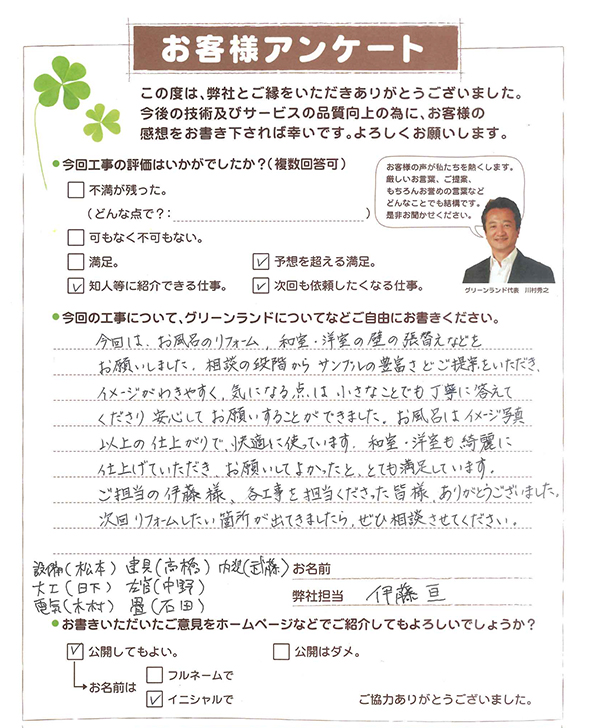 お客様アンケート
この度は、弊社とご縁をいただきありがとうございました。
今後の技術及びサービスの品質向上の為に、お客様の
感想をお書き下されば幸いです。よろしくお願いします。
今回工事の評価はいかがでしたか？（複数回答可）
不満が残った。
（どんな点で？： ）
可もなく不可もない。
満足。 予想を超える満足。
知人等に紹介できる仕事。 次回も依頼したくなる仕事。
お客様の声が私たちを熱くします。
厳しいお言葉、ご提案、
もちろんお誉めの言葉など
どんなことでも結構です。
是非お聞かせください。
グリーンランド代表 川村秀之
今回の工事について、グリーンランドについてなどご自由にお書きください。
今回は、お風呂のリフォーム、和室・洋室の壁の張替えなどを
お願いしました。相談の段階からサンプルの豊富さとご提案をいただき、
イメージがわきやすく、気になる点は小さなことでも丁寧に答えて
くださり安心してお願いすることができました。お風呂はイメージ写真
以上の仕上がりで、快適に使っています。和室・洋室も綺麗に
仕上げていただき、お願いしてよかったと、とても満足しています。
ご担当の伊藤様、各工事を担当くださった皆様、ありがとうございました。
次回リフォームしたい箇所が出てきましたら、ぜひ相談させてください。
設備(松本) 建具(高橋) 内装(武藤) お名前
大工(日下) 左官(中野)
電気(木村) 畳(石田) 弊社担当 伊藤 亘
お書きいただいたご意見をホームページなどでご紹介してもよろしいでしょうか？
公開してもよい。 公開はダメ。
お名前は フルネームで
イニシャルで
ご協力ありがとうございました。